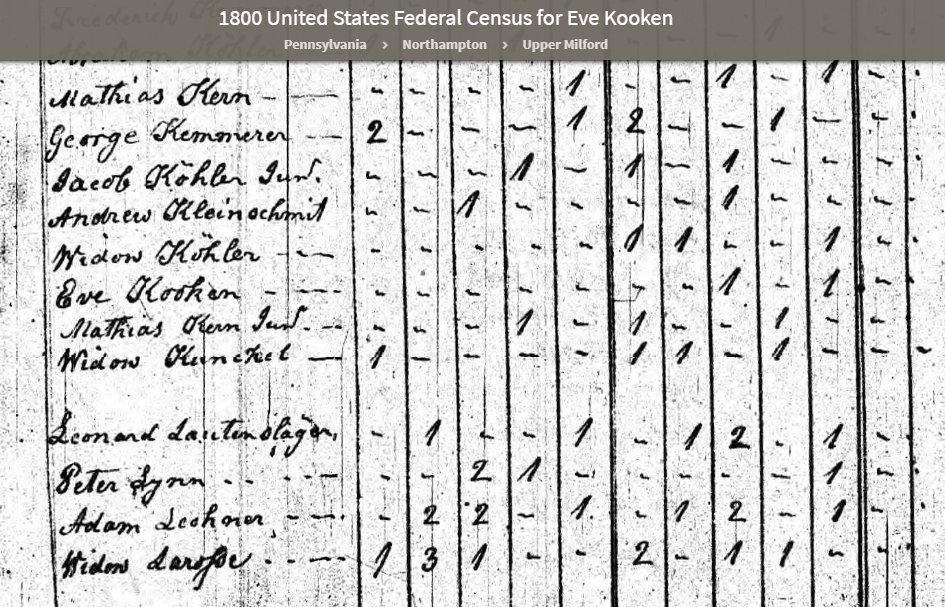 1800 United States Federal Census for Eve Kooken
Pennsylvania > Northampton > Upper Milford
Mathias Kern - — - - - - 1 - - 1 - 1 -
George Kemmerer — 2 - - - 1 2 - - 1 - -
Jacob Köhler Junr. - - - 1 - 1 - 1 - - -
Andrew Kleinschmit - - 1 - - - - 1 - - -
Widow Köhler - — - - - - - 1 1 - - 1 -
Eve Kooken - --- - - - - - - - 1 - 1 -
Mathias Kern Junr. -- - - - 1 - 1 - - 1 - -
Widow Kunckel — 1 - - - - 1 1 - 1 - - -
Leonard Lautenslager, - 1 - - 1 - 1 2 - 1 -
Peter Lynn - - --- - - 2 1 - - - - - 1 -
Adam Lechner - --- - 2 2 - 1 - 1 2 - 1 -
Widow - - --- 1 3 1 - - 2 - 1 1 - -